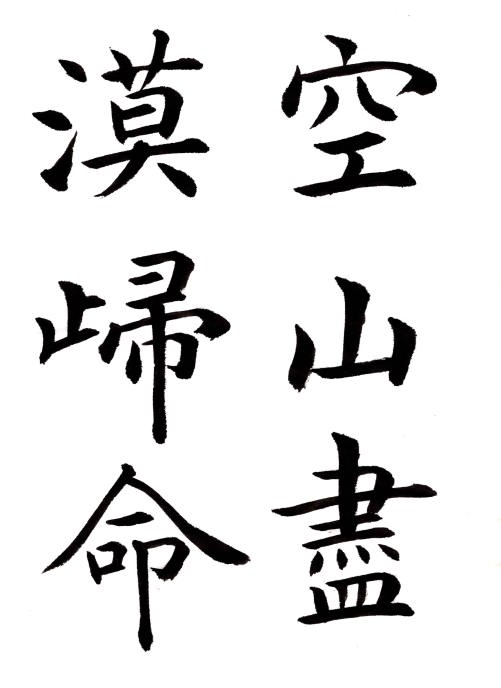 空山盡
漠歸命